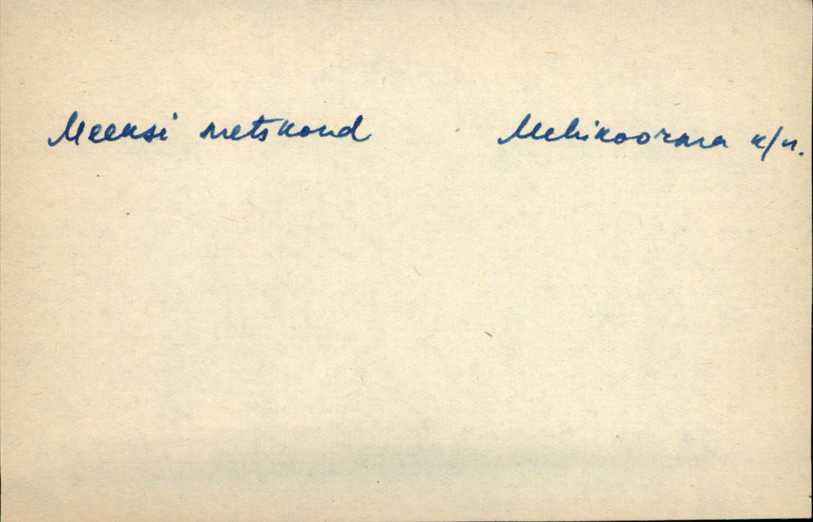 Meeksi metskond Mehikoorma k/n.